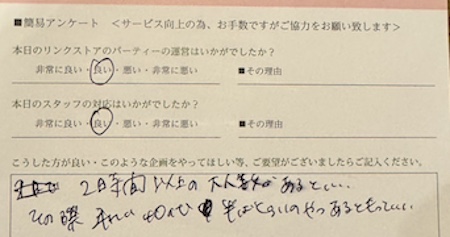 ■簡易アンケート ＜サービス向上の為、お手数ですがご協力をお願い致します＞
本日のリンクストアのパーティーの運営はいかがでしたか？
非常に良い・良い・悪い・非常に悪い ■その理由
本日のスタッフの対応はいかがでしたか？
非常に良い・良い・悪い・非常に悪い ■その理由
こうした方が良い・このような企画をやってほしい等、ご要望がございましたらご記入ください。
2時間以上の大人数があるといい。
その際 40人 半ばくらいのやつあるともっといい